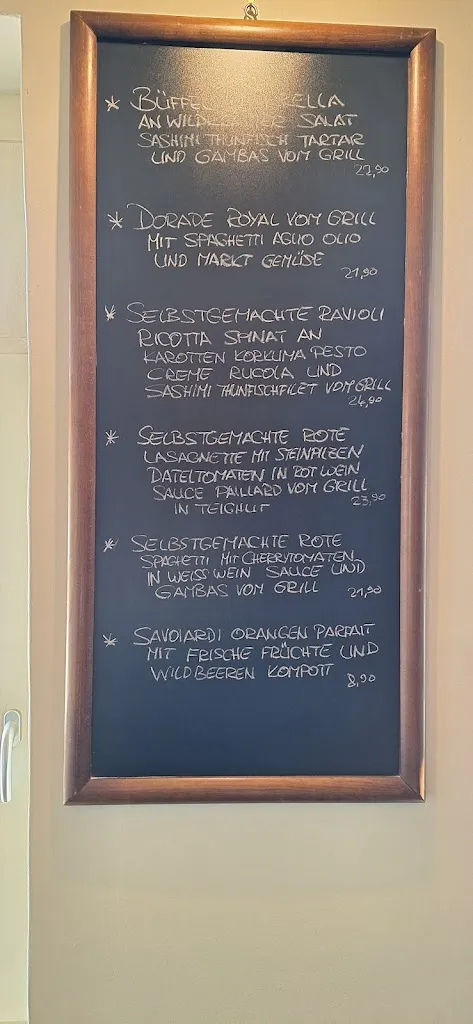 * BÜFFEL RELLA
AN WILDKRÄUTER SALAT
SASHIMI THUNFISCH TARTAR
UND GAMBAS VOM GRILL
22,90
* DORADE ROYAL VOM GRILL
MIT SPAGHETTI AGLIO OLIO
UND MARKT GEMÜSE
21,90
* SELBSTGEMACHTE RAVIOLI
RICOTTA SPINAT AN
KAROTTEN KORKUMA PESTO
CREME RUCOLA UND
SASHIMI THUNFISCHFILET VOM GRILL
24,90
* SELBSTGEMACHTE ROTE
LASAGNETTE MIT STEINPILZEN
DATELTOMATEN IN ROTWEIN
SAUCE PAILLARD VOM GRILL
IN TEIGHUT
23,90
* SELBSTGEMACHTE ROTE
SPAGHETTI MIT CHERRYTOMATEN
IN WEISS WEIN SAUCE UND
GAMBAS VOM GRILL
21,90
* SAVOIARDI ORANGEN PARFAIT
MIT FRISCHE FRÜCHTE UND
WILDBEEREN KOMPOTT
8,90